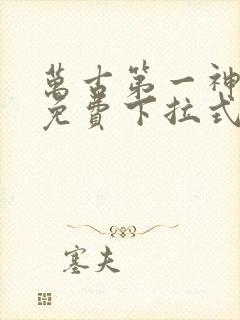 萬古第一神
免費下拉式
塞夫